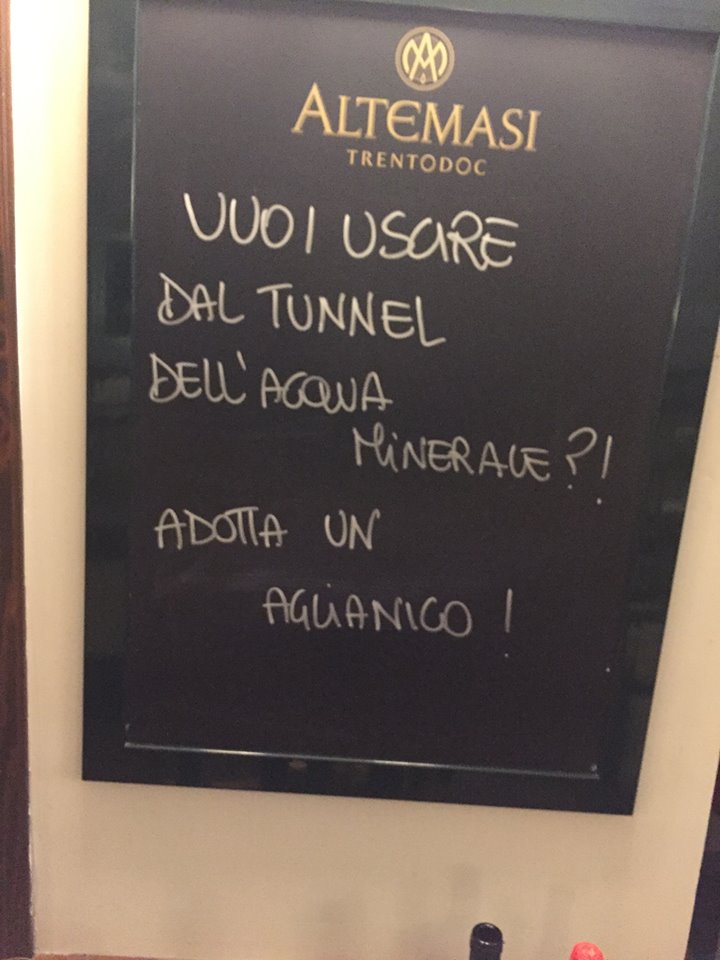 ALTEMASI
TRENTODOC
VUOI USCIRE
DAL TUNNEL
DELL'ACQUA
MINERALE?!
ADOTTA UN
AGLIANICO!